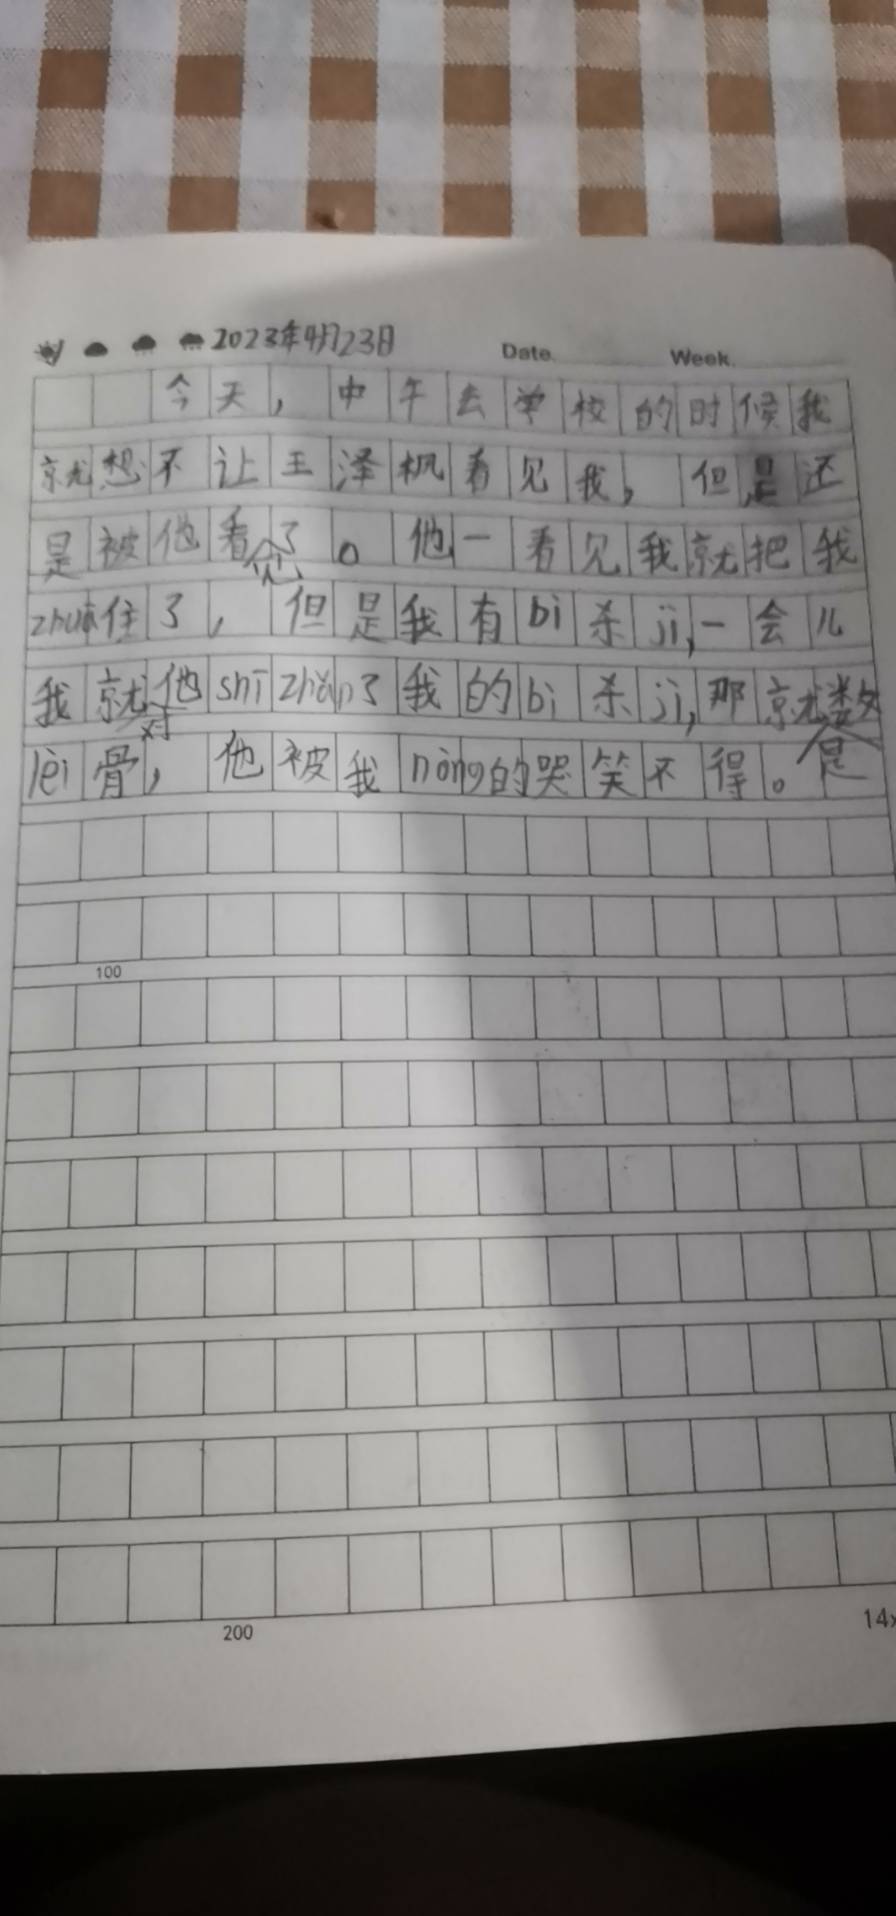 2023年4月23日 Date. Week.
今天，中午去学校的时候我
就想不让王泽枫看见我，但是还
是被他看见了。他一看见我就把我
zhuā住了，但是我有bì杀jì,一会儿
我就对他shī zhǎn了我的bì杀jì,那就是数
lèi骨，他被我nòng的哭笑不得。
100
200
14x